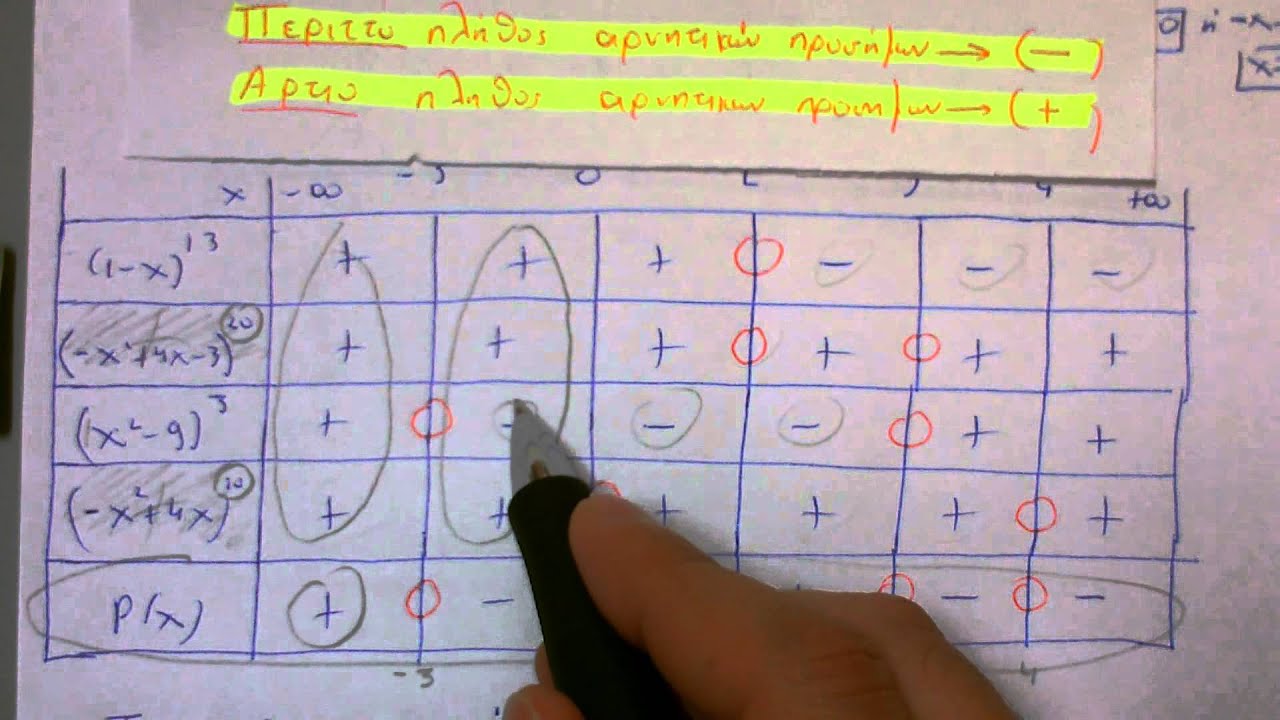 Περιττο πλήθος αρνητικών προσήμων → (−)
Αρτιο πλήθος αρνητικων προσημων → (+)
ή -x
x -∞ 0 +∞
(1-x)^13 + + + − − −
(-x²+4x-3)^20 + + + + + +
(x²-9)^3 + − − − + +
(-x²+4x)^10 + + + + + +
P(x) + − − −
-3 4